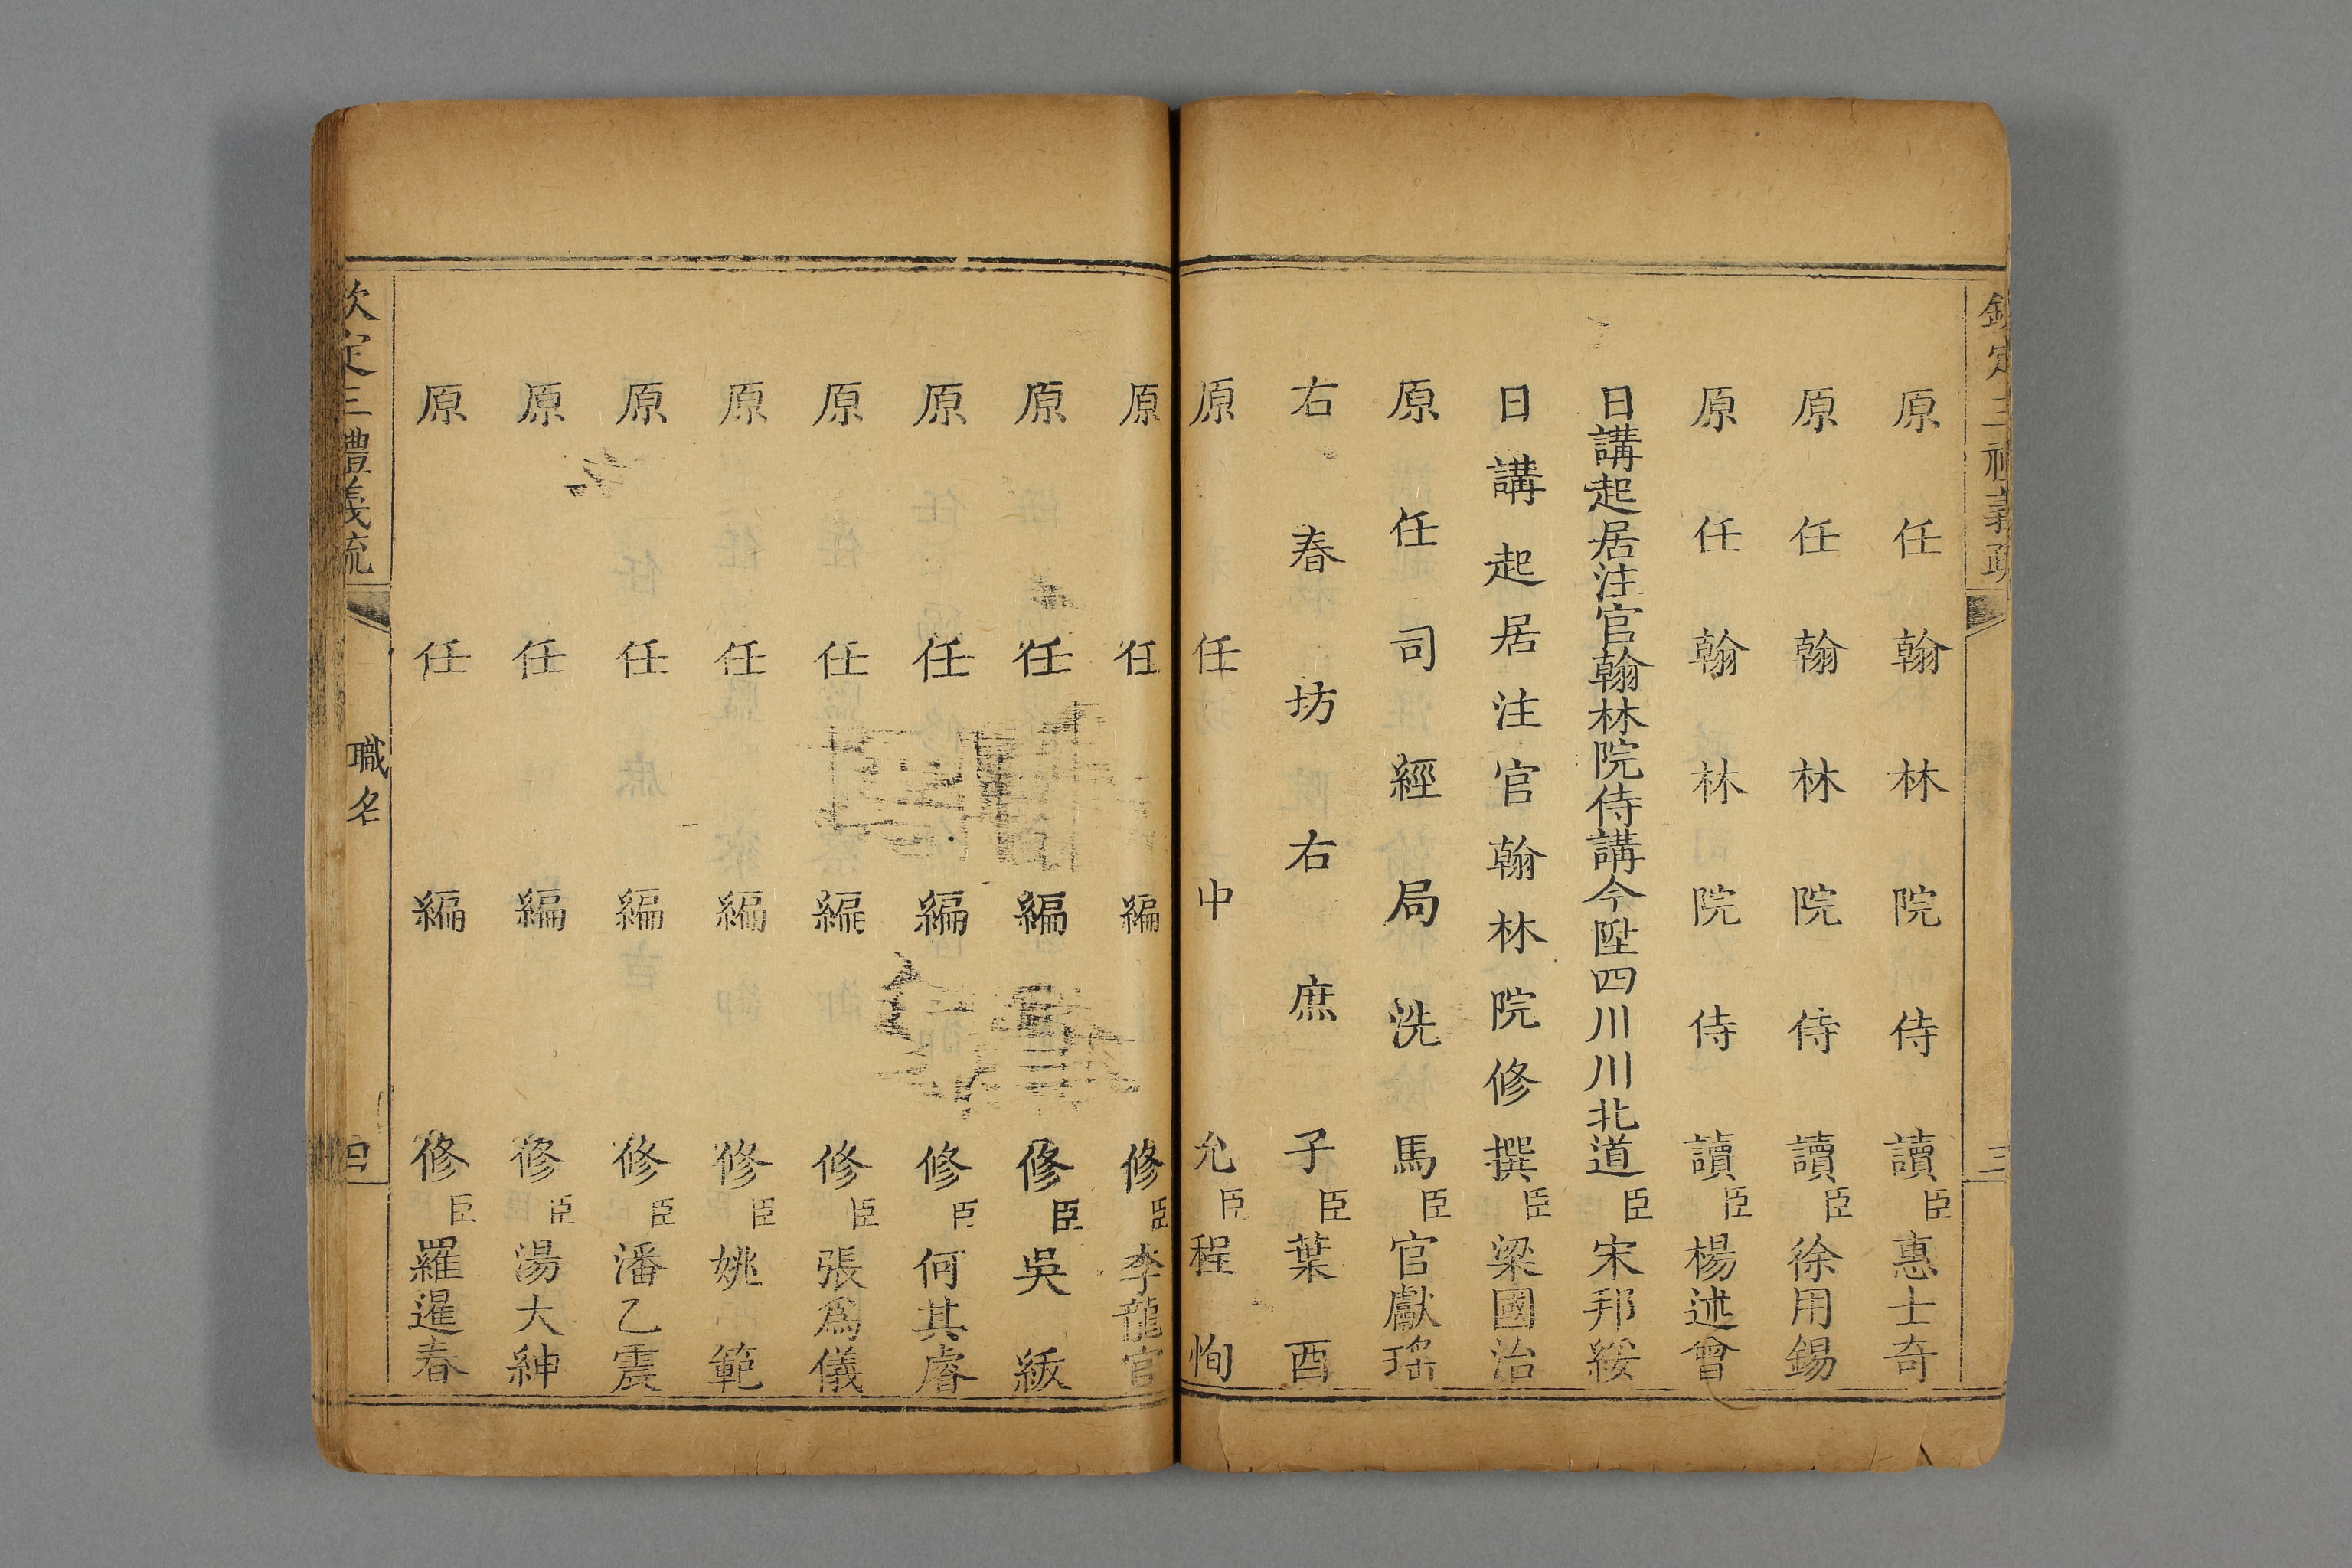 定三義
三
原任翰林院侍讀臣惠士奇
原任翰林院侍讀臣徐用錫
原任翰林院侍讀臣楊述曾
日講起居注官翰林院侍講今陞四川川北道臣宋邦綏
日講起居注官翰林院修撰臣梁國治
原任司經局洗馬臣官獻瑤
右春坊右庶子臣葉酉
原任中允臣程恂
原任編修臣李龍官
原任編修臣吳紱
原任編修臣何其睿
原任編修臣張爲儀
原任編修臣姚範
原任編修臣潘乙震
原任編修臣湯大紳
原任編修臣羅暹春
欽定三禮義疏
職名
四